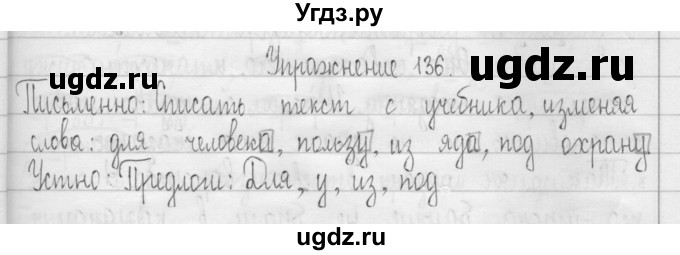 Угдз.ру
Упражнение 136.
ugdz.ru
ugdz.ru
Письменно: Списать текст с учебника, изменяя
слова: для человека, пользу, из яда, под охрану
Устно: Предлоги: Для, у, из, под.
ugdz.ru
ugdz.ru